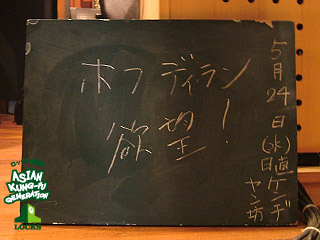 ホフディラン
欲望!
5月24日(水)
日直 ケンヂ
ヤン坊
ASIAN
KUNG-FU
GENERATION
LOCKS